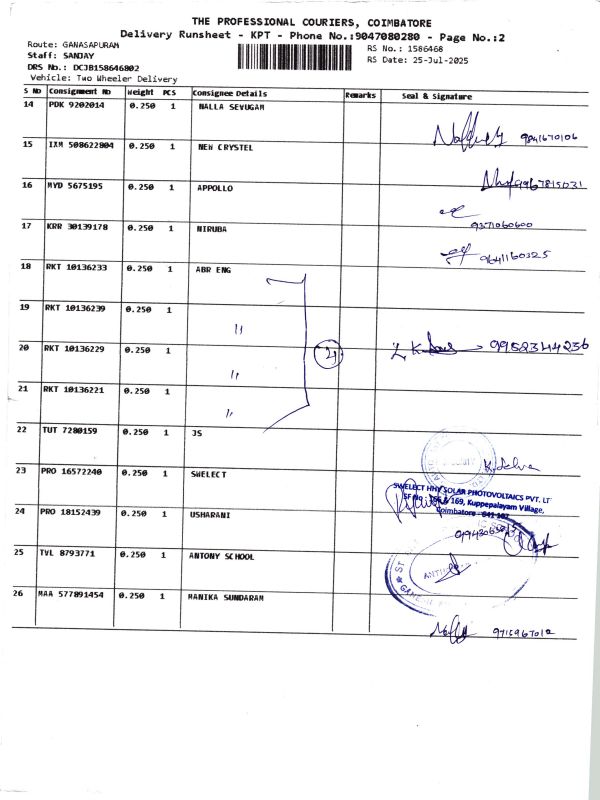 THE PROFESSIONAL COURIERS, COIMBATORE
Delivery Runsheet - KPT - Phone No.:9047080280 - Page No.:2
Route: GANASAPURAM
Staff: SANJAY
DRS No.: DCJB158646802
Vehicle: Two Wheeler Delivery
RS No.: 1586468
RS Date: 25-Jul-2025
S No Consignment No Weight PCS Consignee Details Remarks Seal & Signature
14 PDK 9202014 0.250 1 NALLA SEVUGAM
9841670106
15 IXM 508622804 0.250 1 NEW CRYSTEL
9967815031
16 MYD 5675195 0.250 1 APPOLLO
9371060600
17 KRR 30139178 0.250 1 NIRUBA
9641160325
18 RKT 10136233 0.250 1 ABR ENG
19 RKT 10136239 0.250 1 "
20 RKT 10136229 0.250 1 " 4 9952344236
21 RKT 10136221 0.250 1 "
22 TUT 7280159 0.250 1 JS
K. Selva
23 PRO 16572240 0.250 1 SWELECT
SWELECT HHV SOLAR PHOTOVOLTAICS PVT. LT
SF No : 166 & 169, Kuppepalayam Village,
Coimbatore - 641 107
24 PRO 18152439 0.250 1 USHARANI
25 TVL 8793771 0.250 1 ANTONY SCHOOL
26 MAA 577891454 0.250 1 MANIKA SUNDARAM
9715967012